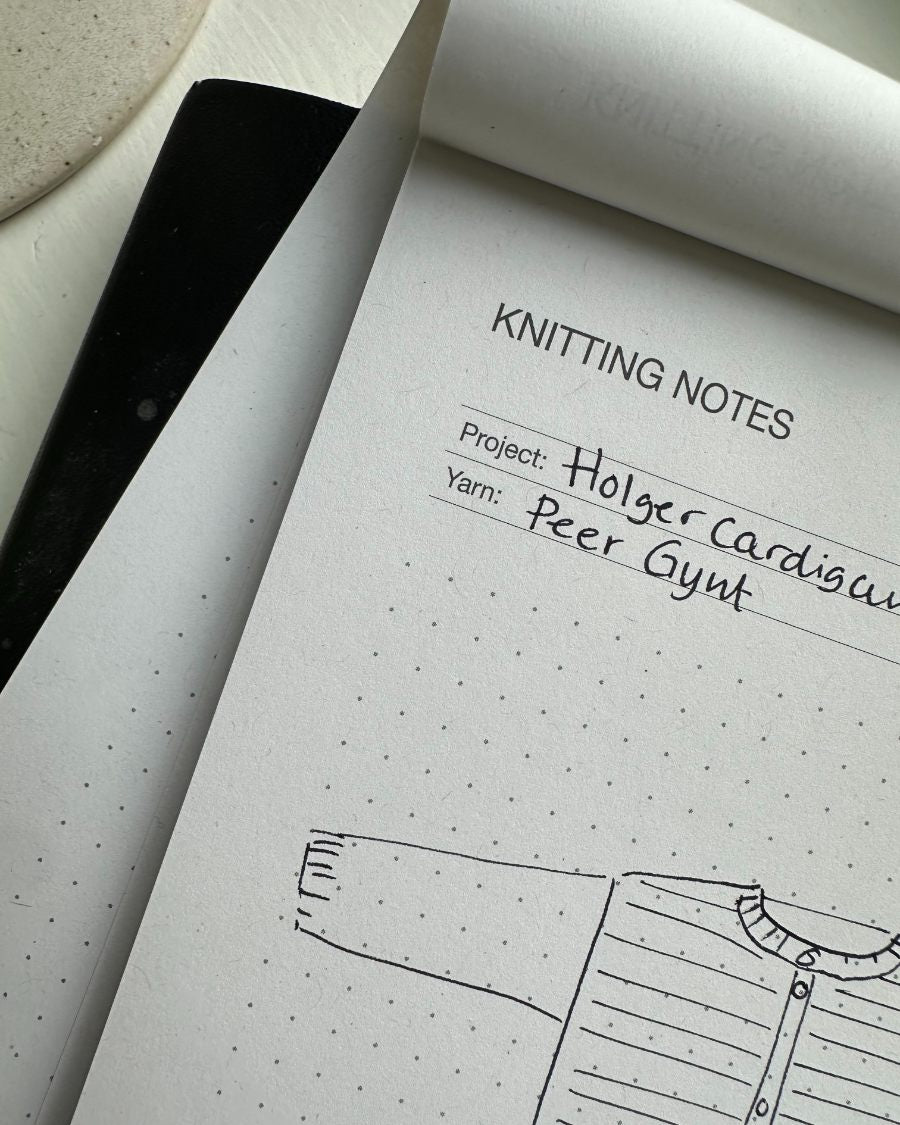 KNITTING NOTES
Project: Holger Cardigan
Yarn: Peer Gynt